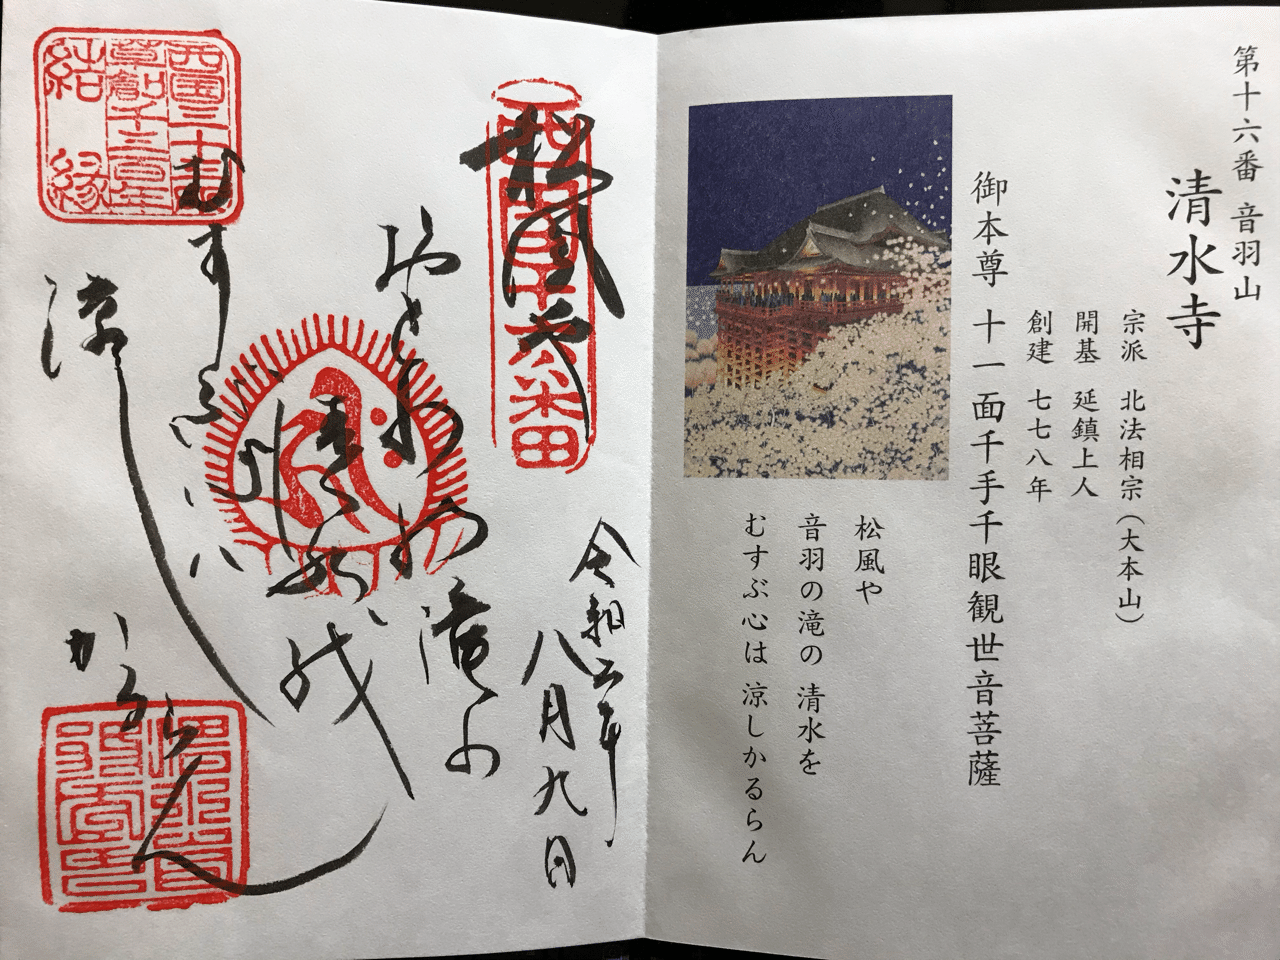 第十六番 音羽山
清水寺
宗派 北法相宗(大本山)
開基 延鎮上人
創建 七七八年
御本尊 十一面千手千眼観世音菩薩
松風や
音羽の滝の 清水を
むすぶ心は 涼しかるらん
西国十六番
松風や
令和二年
八月九日
おとわ
滝の
清水
むすふ
涼し
かるらん
西国三十三所
草創千三百年
結縁